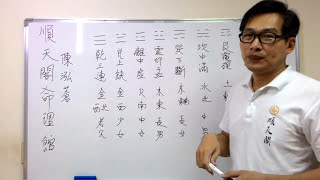 艮覆碗 土
坎中滿 水 北 中男
巽下斷 木 東南 長女
震仰盂 木 東 長男
離中虛 火 南 中女
兌上缺 金 西 少女
乾三連 金 西北 老父
陳泓
順天閣命理館
順天閣